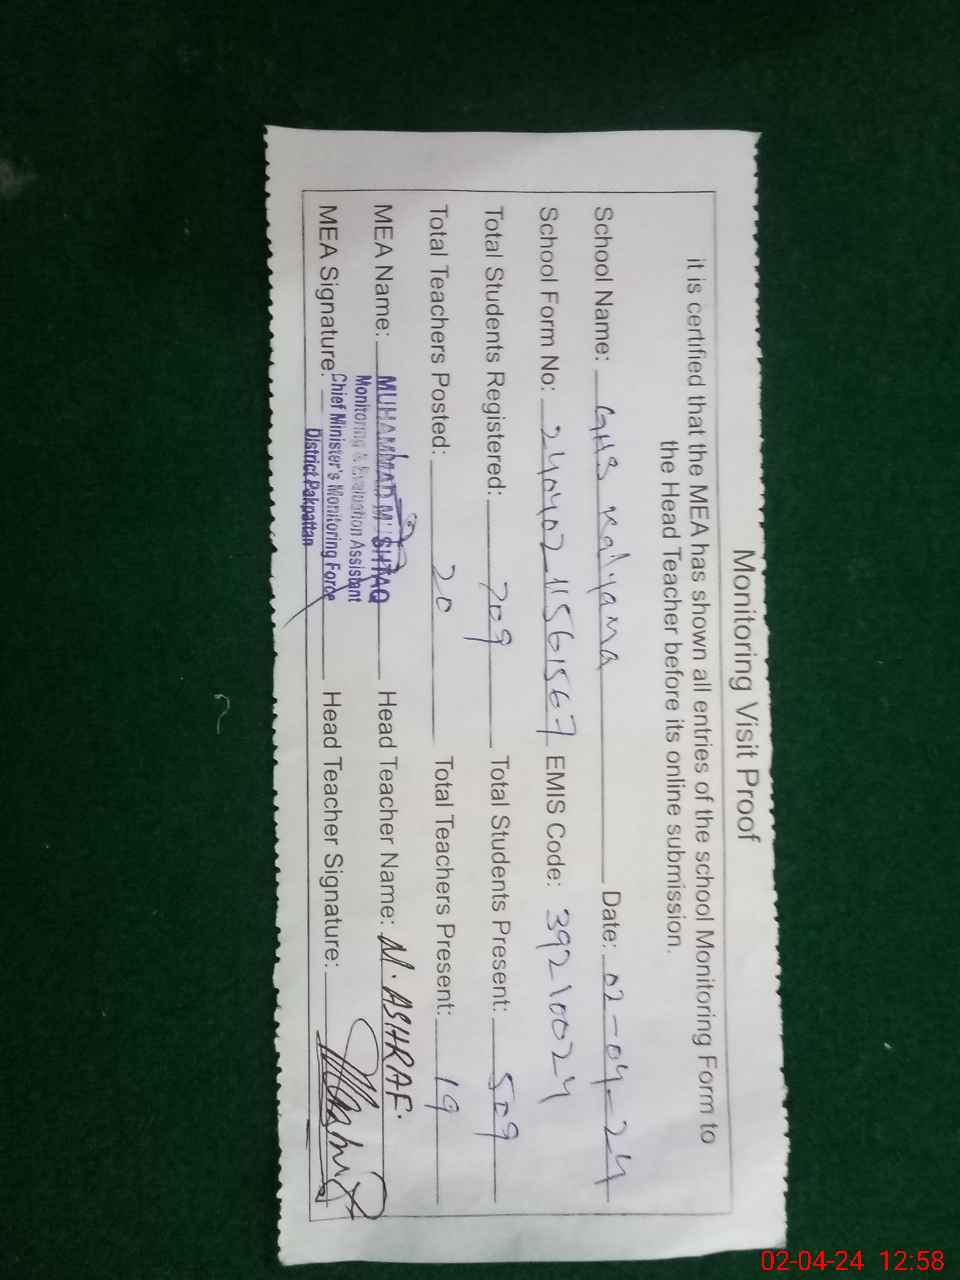 Monitoring Visit Proof
it is certified that the MEA has shown all entries of the school Monitoring Form to
the Head Teacher before its online submission.
School Name: GHS Kalyana Date: 02-04-24
School Form No: 240402_11561567 EMIS Code: 39210024
Total Students Registered: 709 Total Students Present: 509
Total Teachers Posted: 20 Total Teachers Present: 19
MEA Name: MUHAMMAD MUSHTAQ Head Teacher Name: M. ASHRAF.
Monitoring & Evaluation Assistant
MEA Signature: Chief Minister's Monitoring Force Head Teacher Signature:
District Pakpattan
02-04-24 12:58